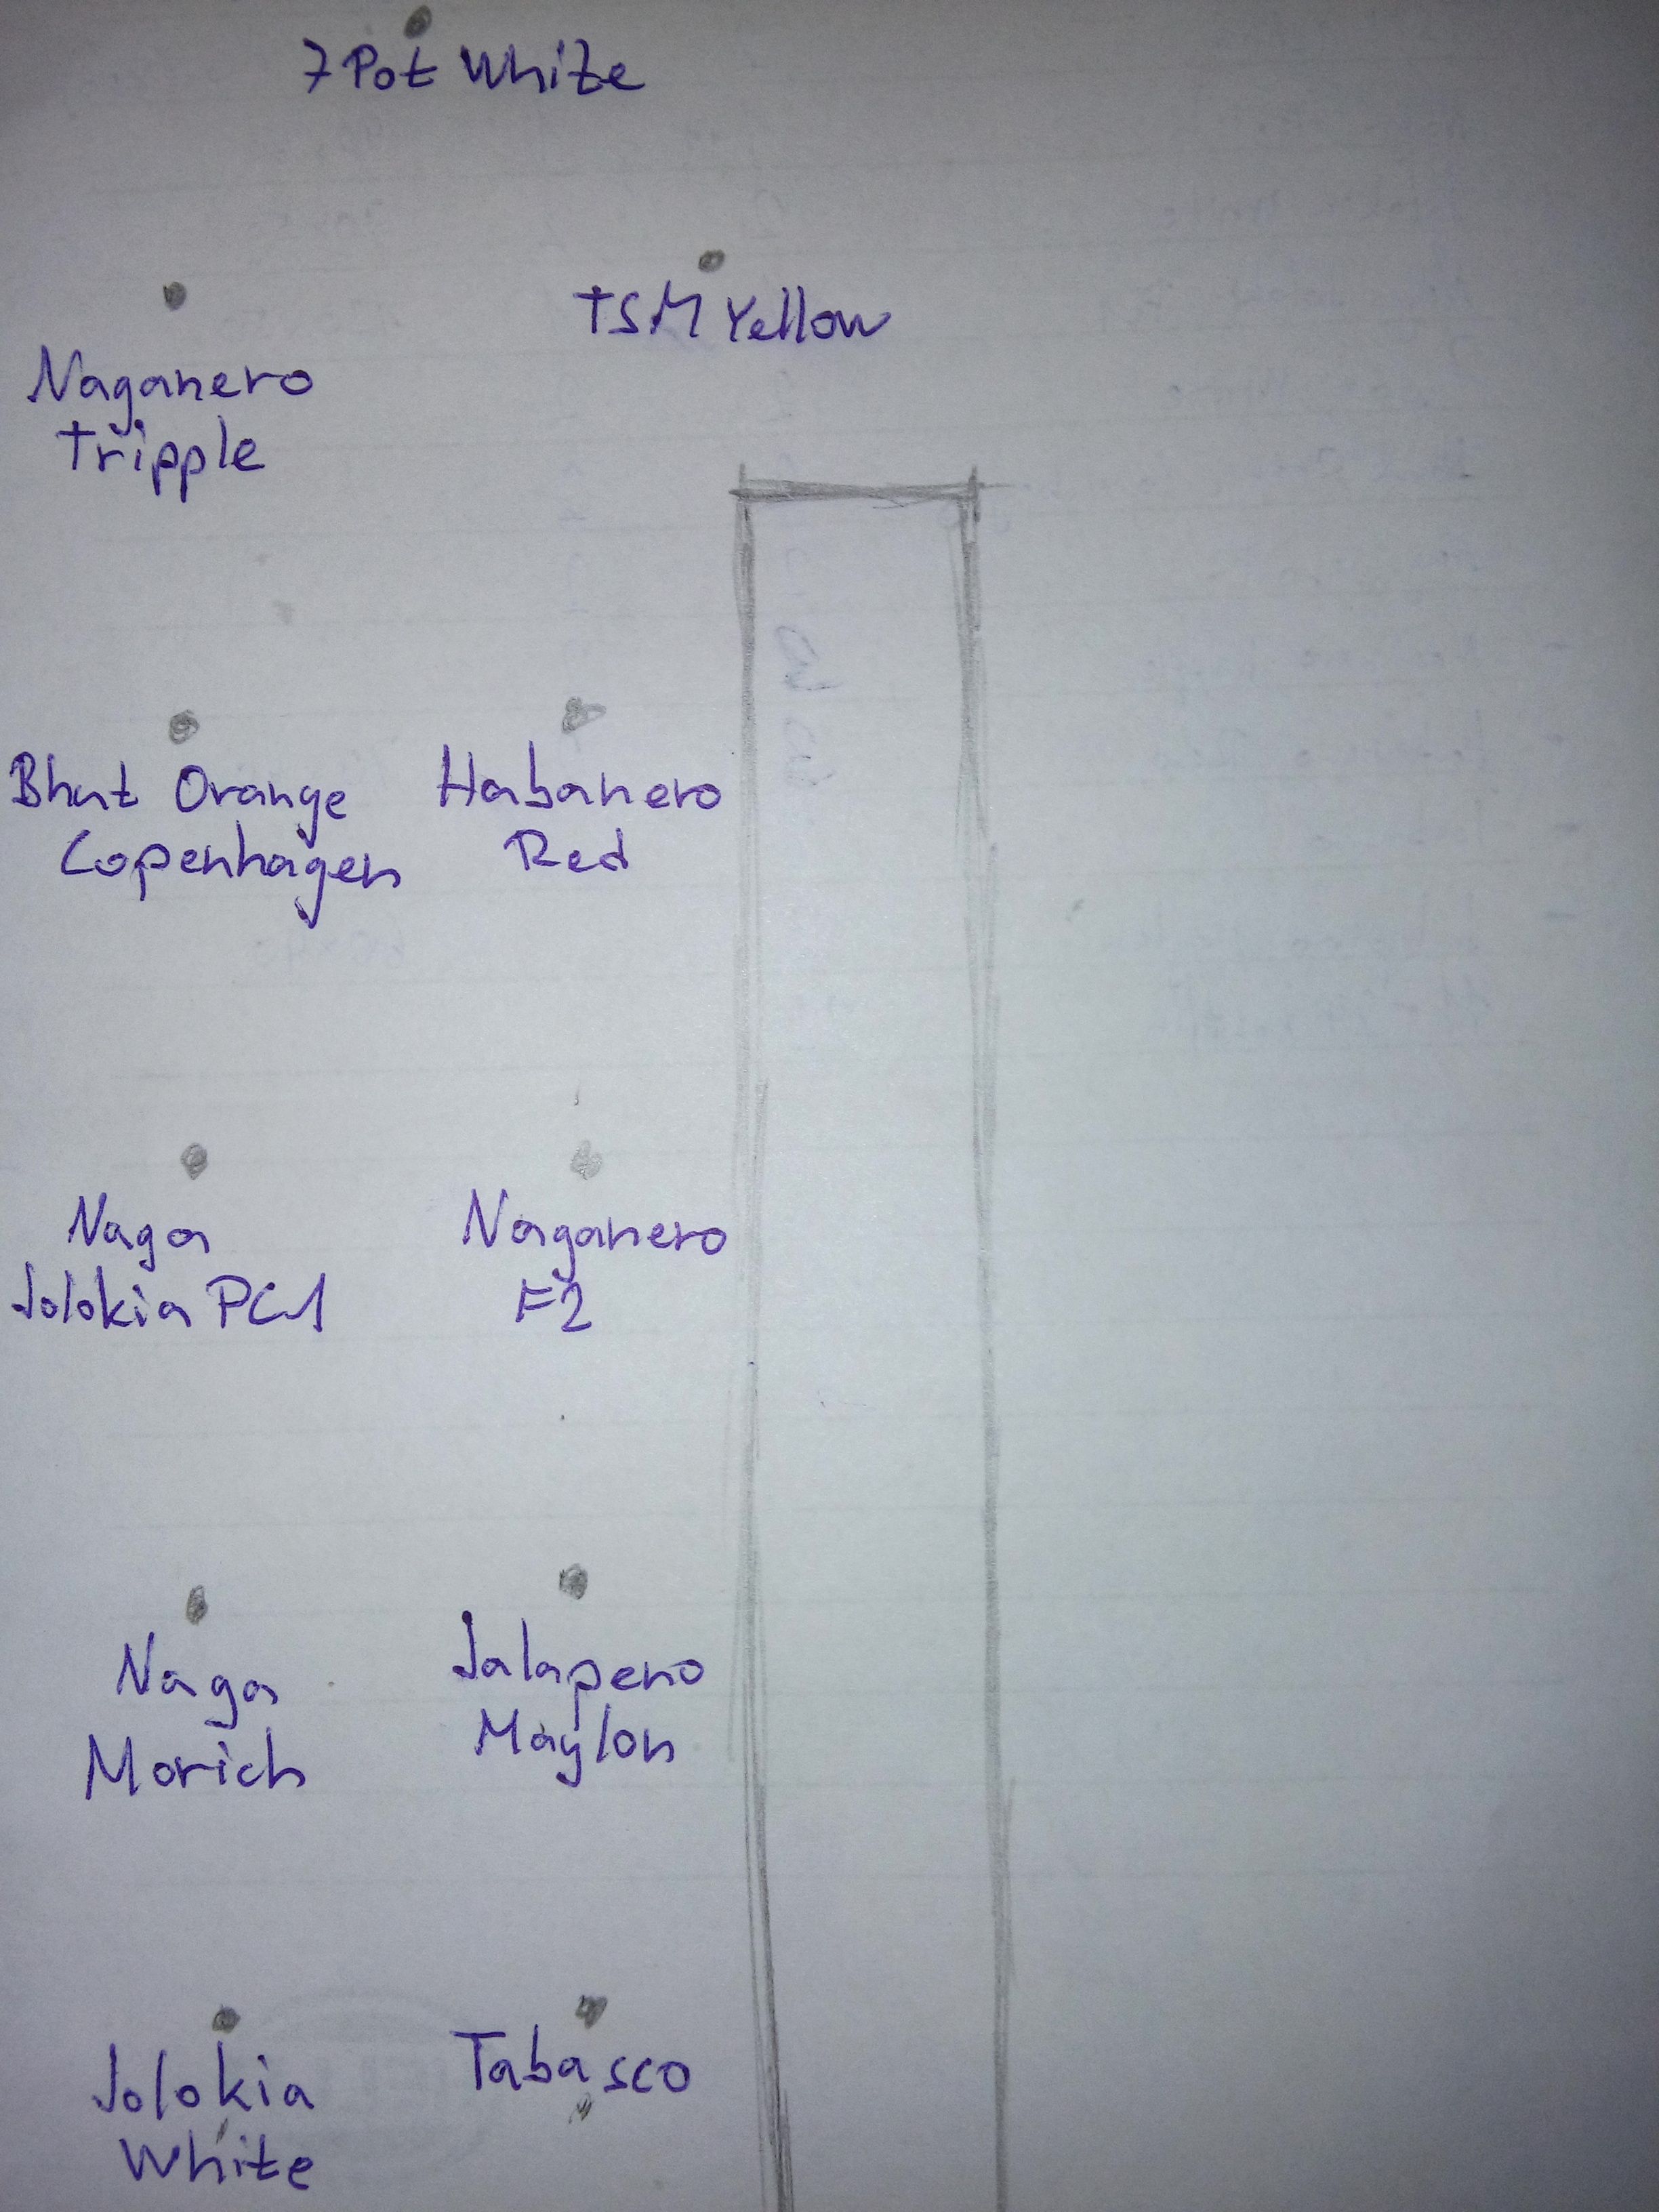 7 Pot White
TSM Yellow
Naganero
Tripple
Bhut Orange
Copenhagen
Habanero
Red
Naga
Jolokia PC1
Naganero
F2
Naga
Morich
Jalapeno
Maylon
Jolokia
White
Tabasco